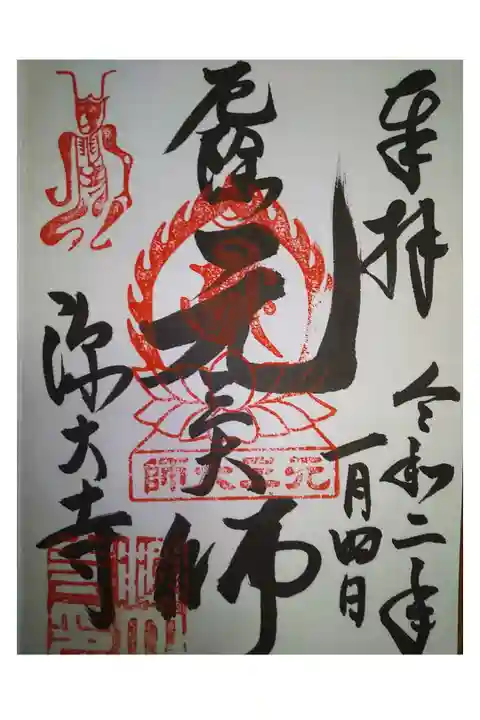 奉拝
令和二年
一月四日
厄除元三大師
元三大師
深大寺